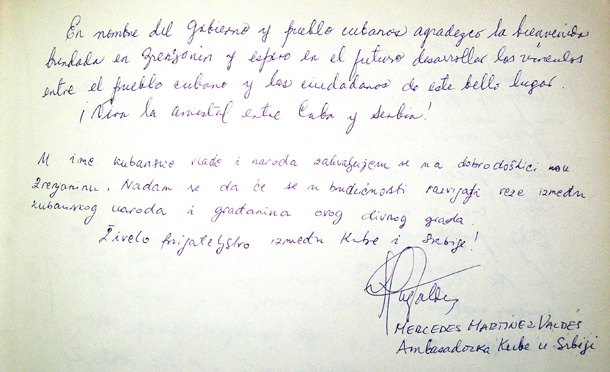 En nombre del Gobierno y pueblo cubanos agradezco la bienvenida
brindada en Zrenjanin y espero en el futuro desarrollar los vínculos
entre el pueblo cubano y los ciudadanos de este bello lugar.
¡Viva la amistad entre Cuba y Serbia!
U ime kubanske vlade i naroda zahvaljujem se na dobrodošlici
Zrenjaninu. Nadam se da će se u budućnosti razvijati veze između
kubanskog naroda i građanina ovog divnog grada.
Živelo prijateljstvo između Kube i Srbije!
MERCEDES MARTÍNEZ VALDÉS
Ambasadorka Kube u Srbiji